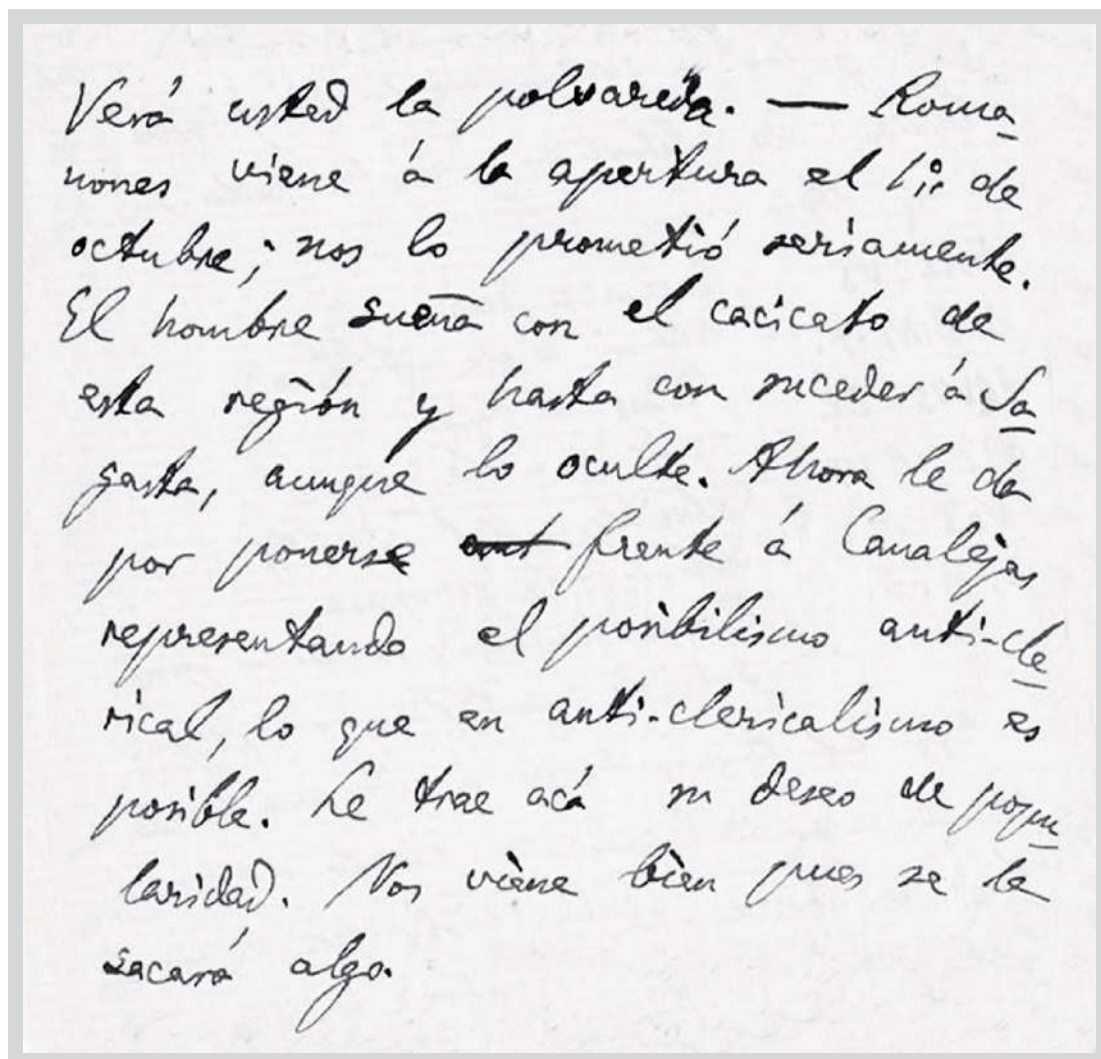 Verá usted la polvareda. — Roma
nones viene á la apertura el 1º de
octubre; nos lo prometió seriamente.
El hombre sueña con el cacicato de
esta región y hasta con suceder á Sa
gasta, aunque lo oculte. Ahora le da
por ponerse ant frente á Canalejas
representando el posibilismo anti-cle
rical, lo que en anti-clericalismo es
posible. Le trae acá su deseo de popu
laridad. Nos viene bien pues se le
sacará algo.